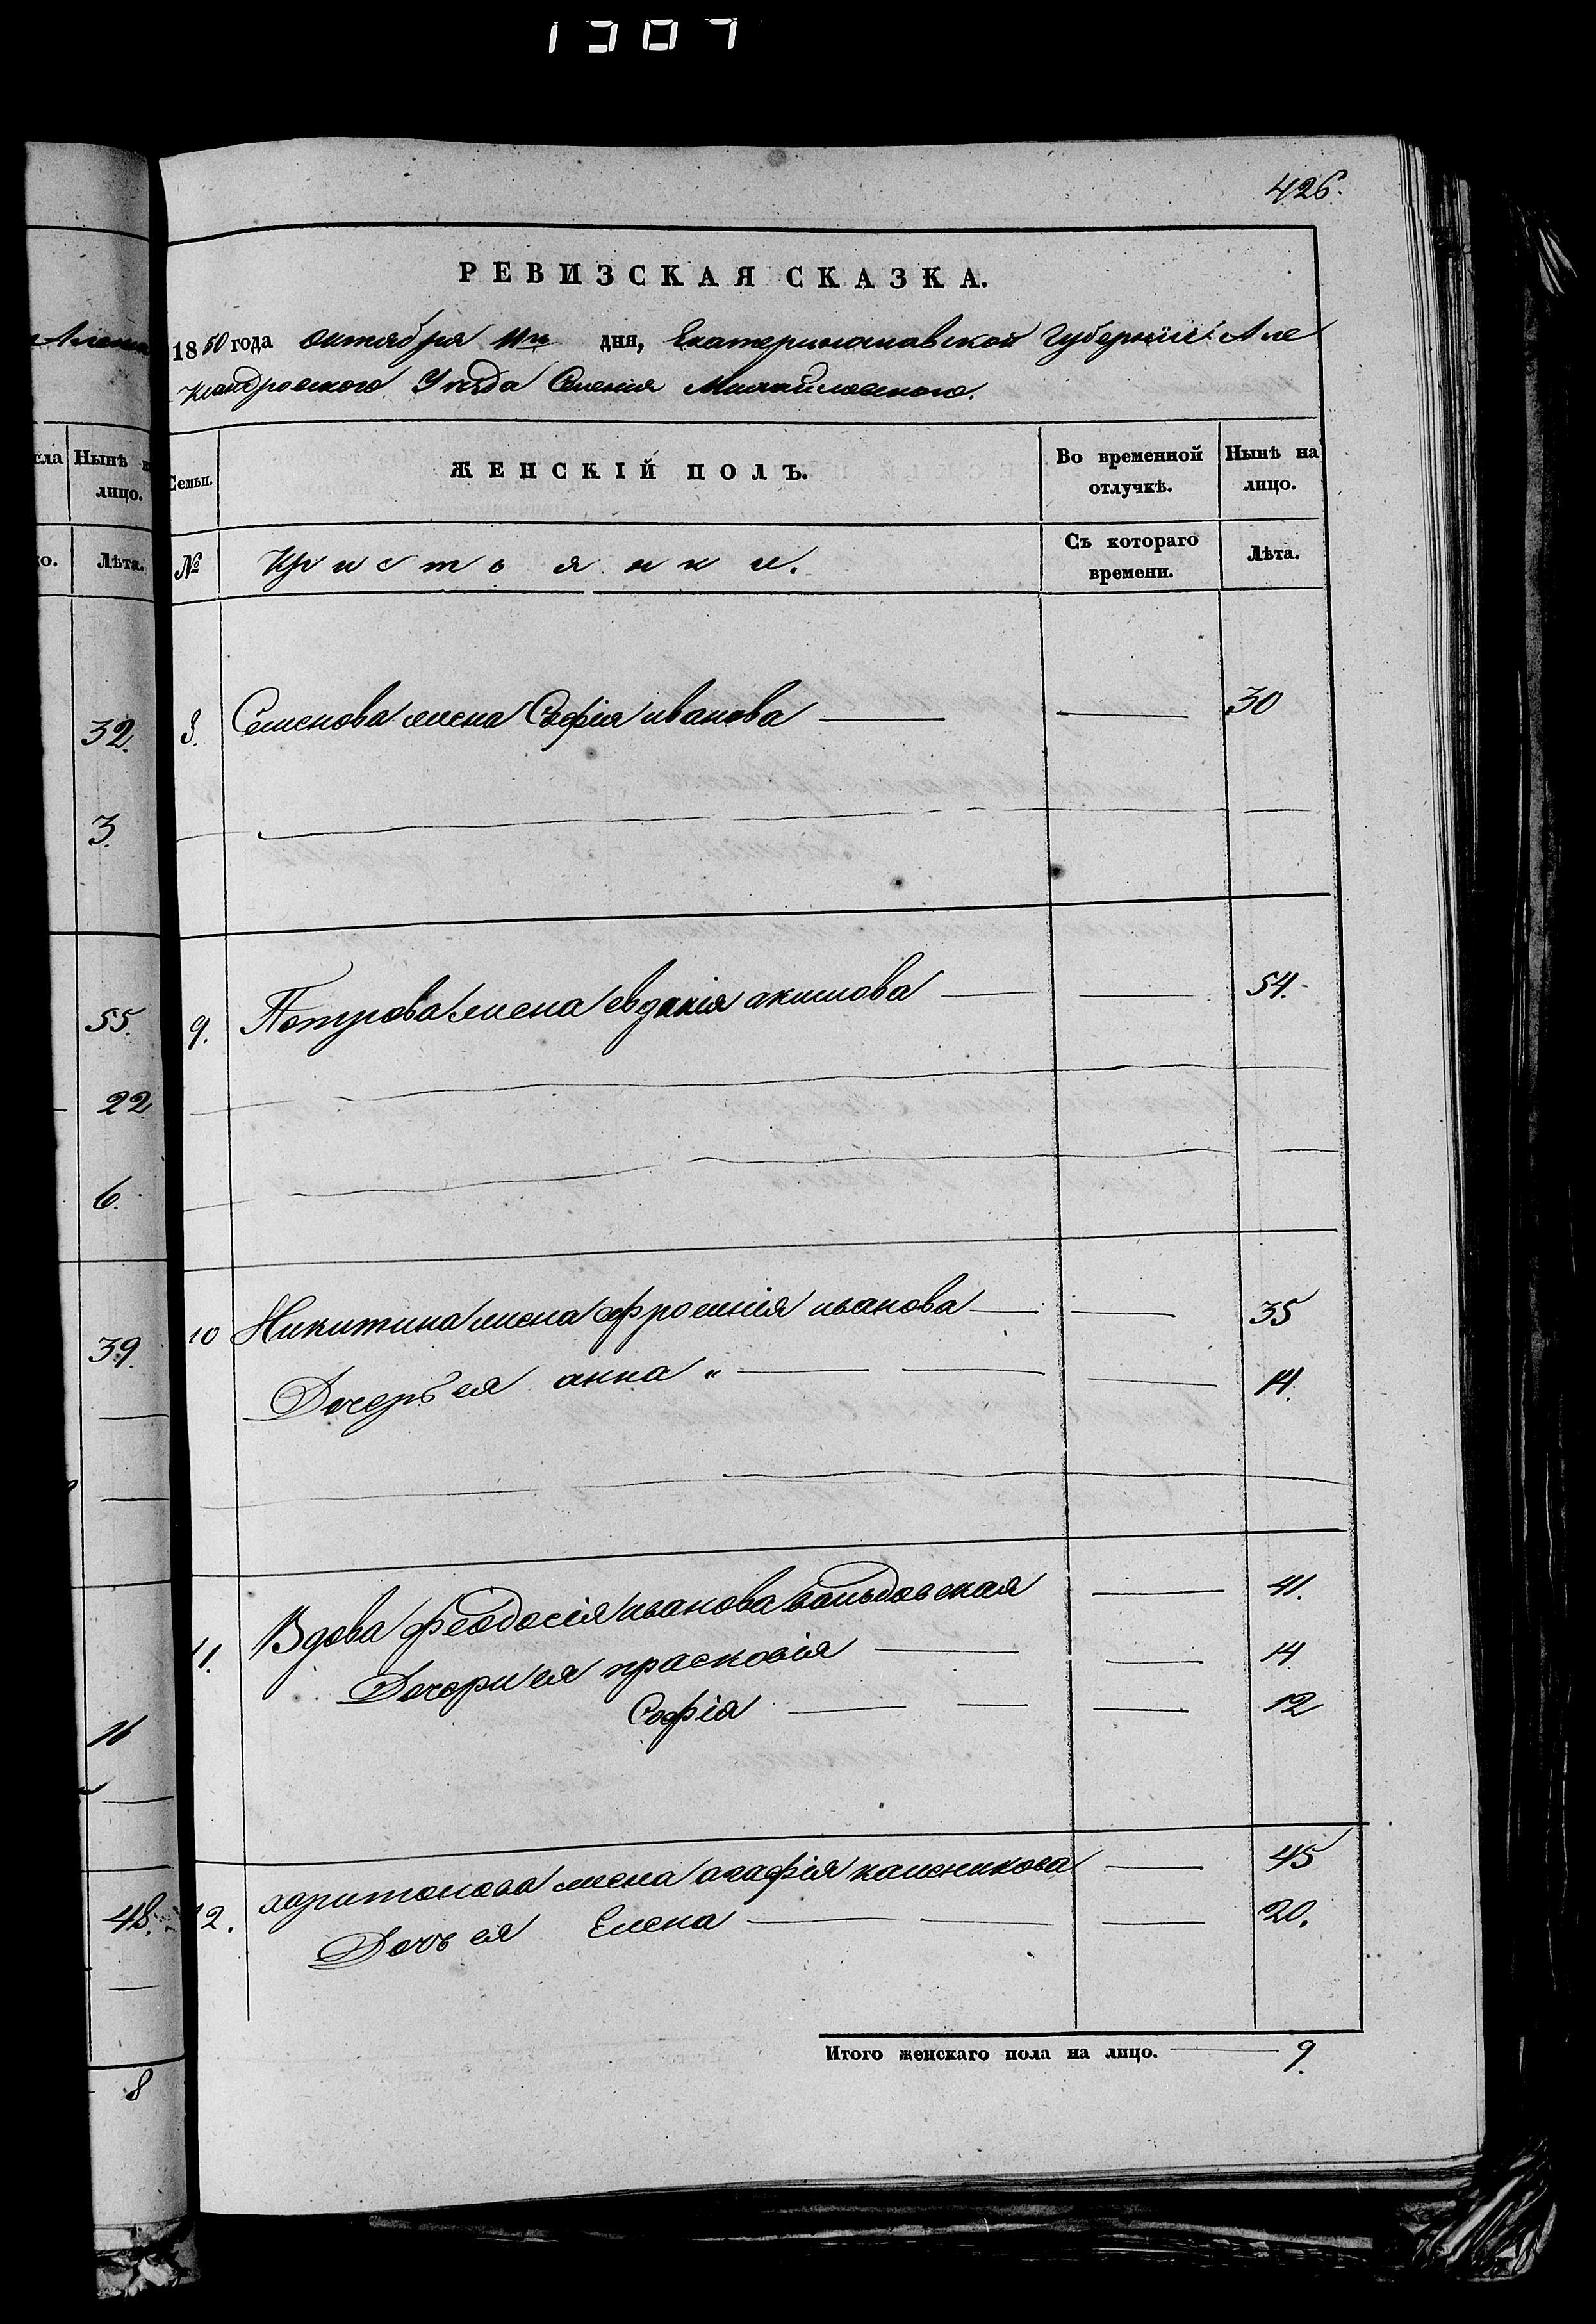 1307
426.
РЕВИЗСКАЯ СКАЗКА.
1850 года Октября 11го дня, Екатеринославской Губернии Але
ксандровского Уезда Селения Михайловского.
сла Нынѣ
лицо.
Лѣта.
Семьи. ЖЕНСКІЙ ПОЛЪ. Во временной отлучкѣ. Нынѣ на лицо.
№ Кристьянки. Съ котораго времени. Лѣта.
32.
3.
8. Семенова жена Софія иванова — — 30
55.
22.
6.
9. Петрова жена евдакія акимова — — 54.
39.
10 Никитина жена Ефросинія иванова — — 35
Дочерь ея анна " — — — 14.
11. Вдова феодосія иванова — 41.
Дочери ея прасковія — — 14.
Софія — — — 12
16
12. харитонова жена агафія — 45
Дочь ея Елена — — — 20.
48.
8
Итого женскаго пола на лицо. — 9.